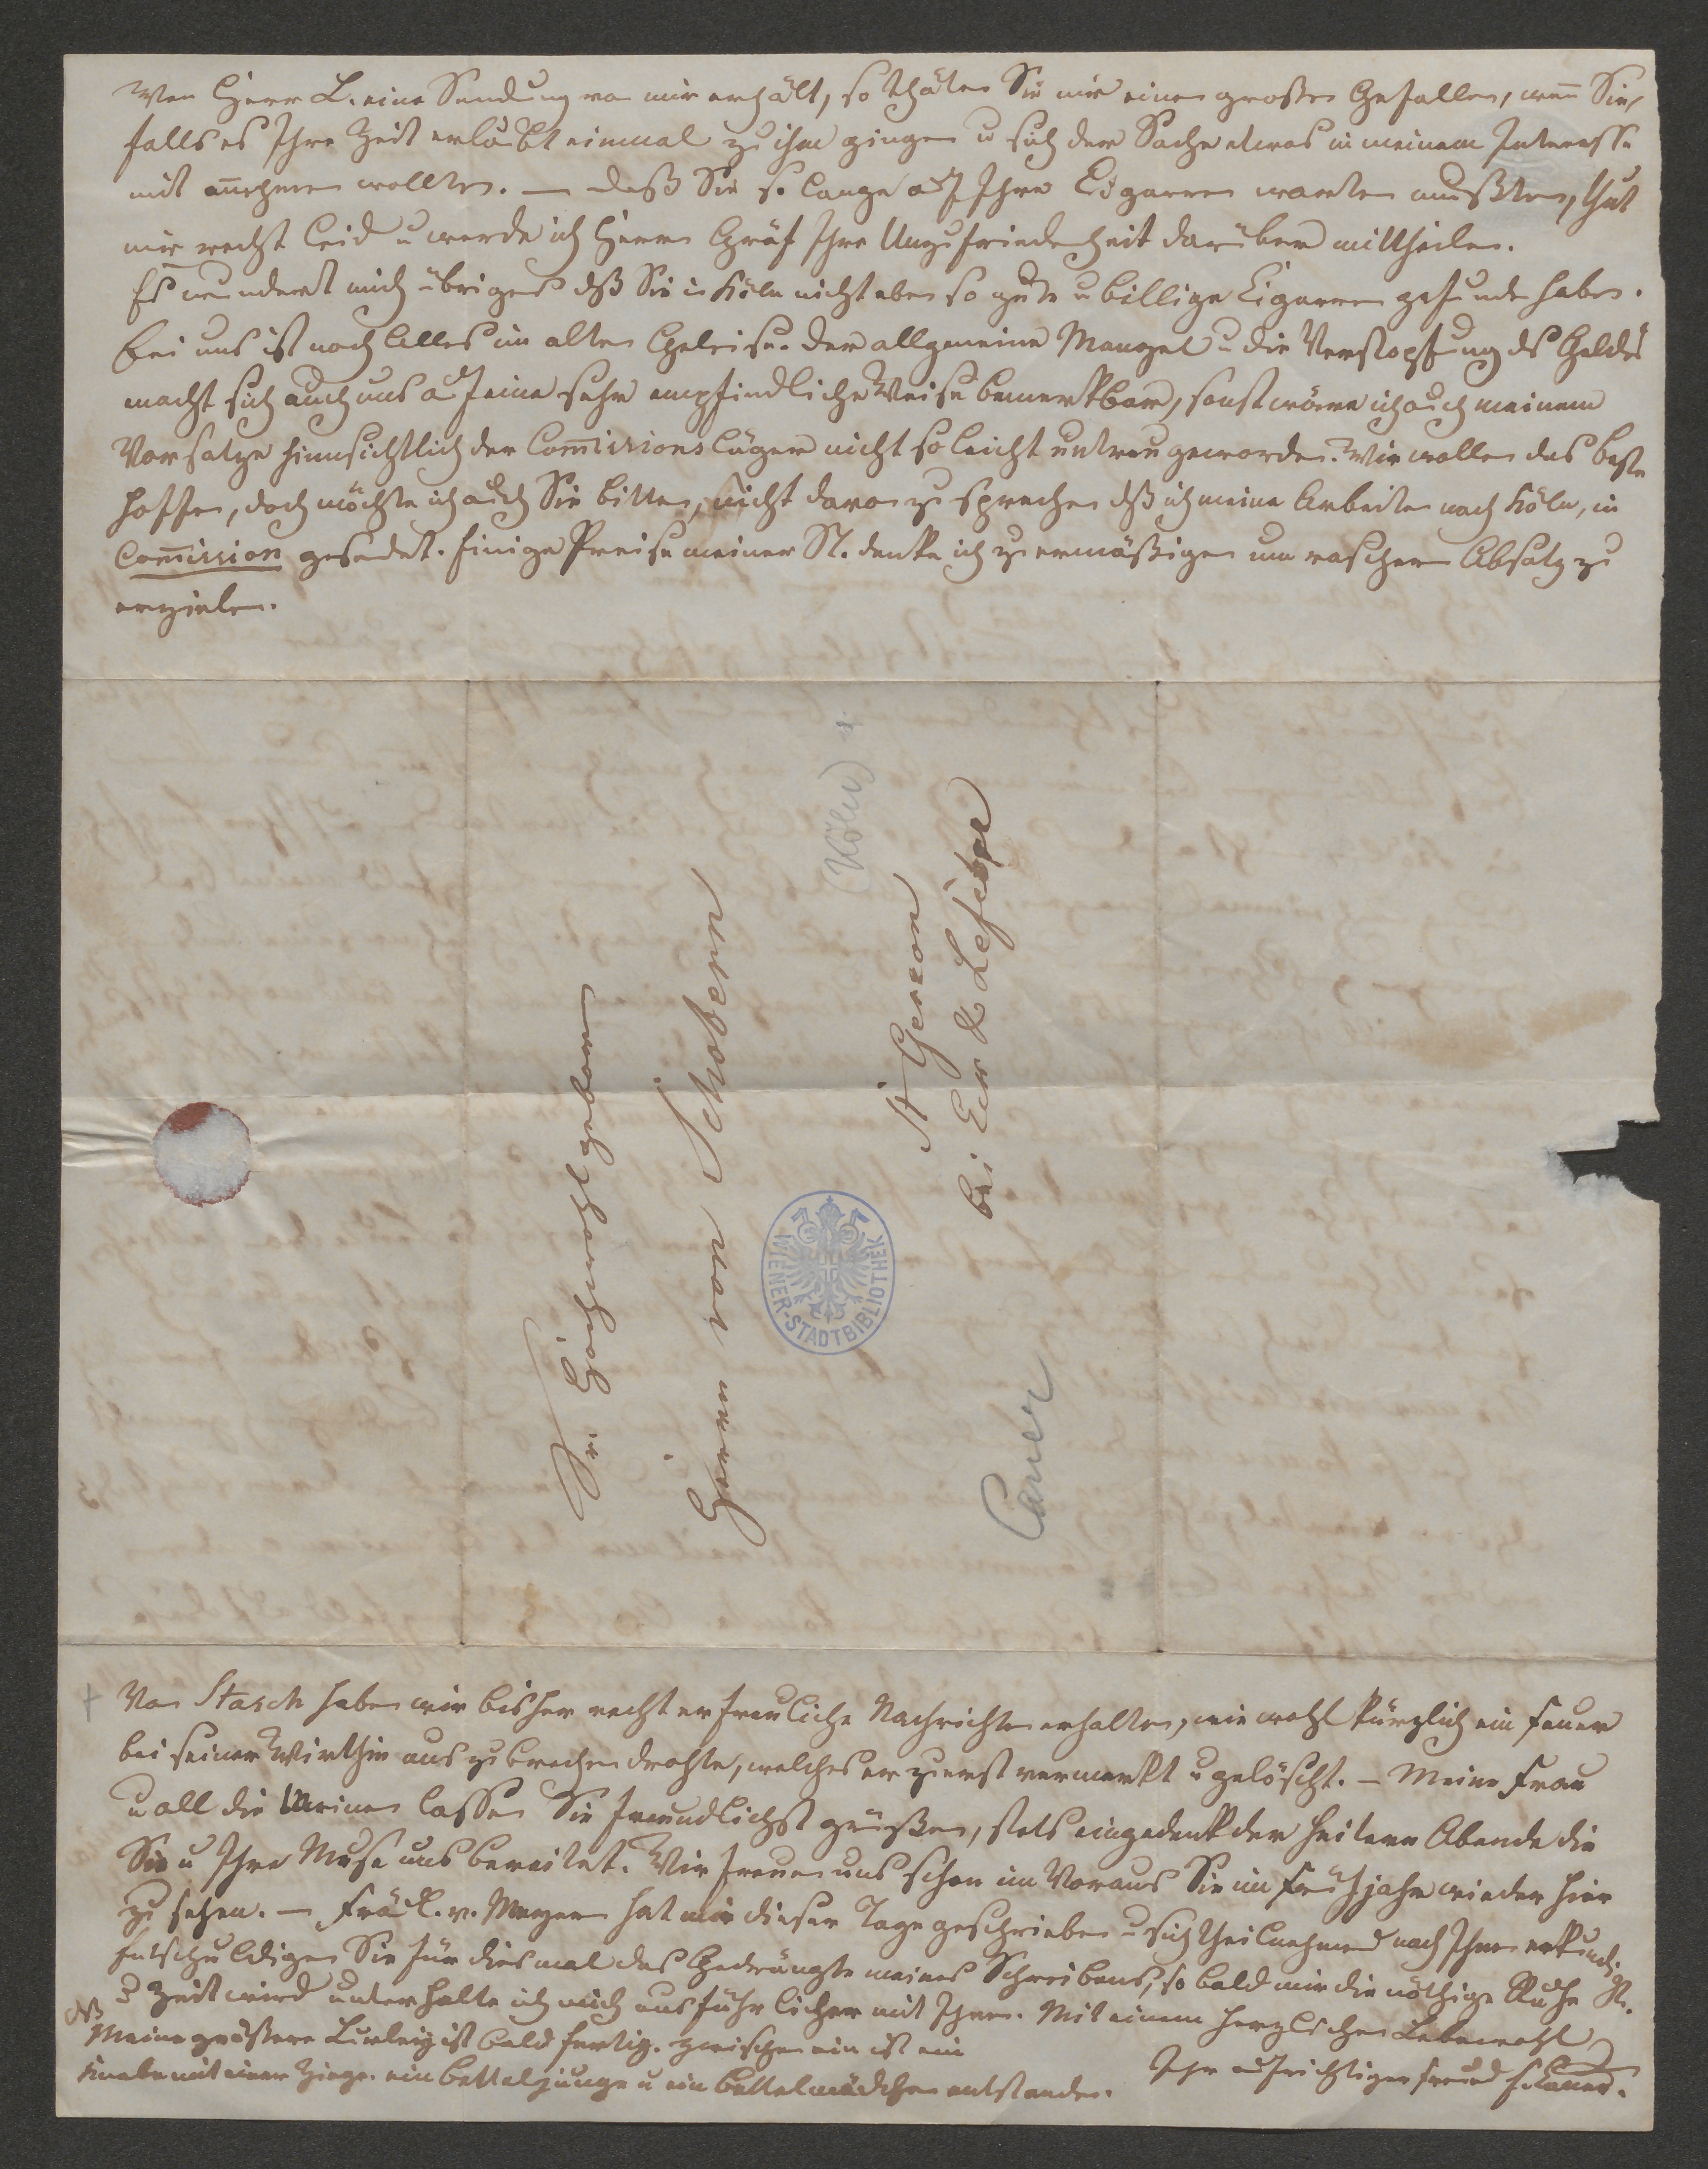 Wen Herr L. eine Sendung von mir erhält, so thäten Sie mir einen großen Gefallen, wenn Sie,
falls es Ihre Zeit erlaubt einmal zu ihm gingen u sich der Sache etwas in meinem Interesse
mit annehmen wollten. — Daß Sie so lange auf Ihre Cigarren warten mußten, thut
mir recht leid u werde ich Herrn Gräf Ihre Unzufriedenheit darüber mittheilen.
Es wundert mich übrigens dß Sie in Köln nicht eben so gute u billige Cigarren gefunden haben.
Bei uns ist noch Alles im alten Geleise. Der allgemeine Mangel u die Verstopfung des Geldes
macht sich auch uns auf eine sehr empfindliche Weise bemerkbar, sonst wäre ich auch meinem
Vorsatze hinsichtlich der Commissionsläger nicht so leicht untreu geworden. Wir wollen das beste
hoffen, doch möchte ich auch Sie bitten, nicht davon zu sprechen dß ich meine Arbeiten nach Köln, in
Commission gesendet. Einige Preise meiner St. denke ich zu ermäßigen um raschern Absatz zu
erzielen.
Sr. Hochwohlgeboren
Herrn von Schobern
(Köln)
St Gereon
bei Eur & Lefebre
Cauer
WIENER-STADTBIBLIOTHEK
Von Stasch haben wir bisher recht erfreuliche Nachrichten erhalten, wie wohl kürzlich ein Feuer
bei seiner Wirthin auszubrechen drohte, welches er zuerst vermerkt u gelöscht. — Meine Frau
u all die Meinen lassen Sie freundlichst grüßen, stets eingedenk der heitern Abende die
Sie u Ihre Muse uns bereitet. Wir freuen uns schon im Voraus Sie im Frühjahr wieder hier
zu sehen. — Fräul. v. Meyern hat mir dieser Tage geschrieben u sich theilnehmend nach Ihnen erkundigt.
Entschuldigen Sie für diesmal das Gedrängte meines Schreibens, so bald mir die nöthige Ruhe
u Zeit wird unterhalte ich mich ausführlicher mit Ihnen. Mit einem herzlichen Lebewohl
Ihr aufrichtiger Freund E. Cauer.
NB
Meine größere Lurleig ist bald fertig. zwischen ein ist ein
Knabe mit einer Ziege. ein Betteljunge u ein Bettelmädchen entstanden.